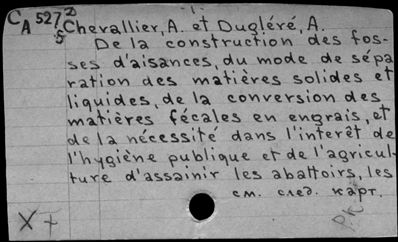 -1-
CA 527 D
5
Chevallier, A. et Dugléré, A.
De la construction des fos-
ses d'aisances, du mode de sépa
ration des matières solides et
liquides, de la conversion des
matières fécales en engrais, et
de la nécessité dans l'interêt de
l'hygiène publique et de l'agricul-
ture d'assainir les abattoirs, les
см. след. карт.
X +